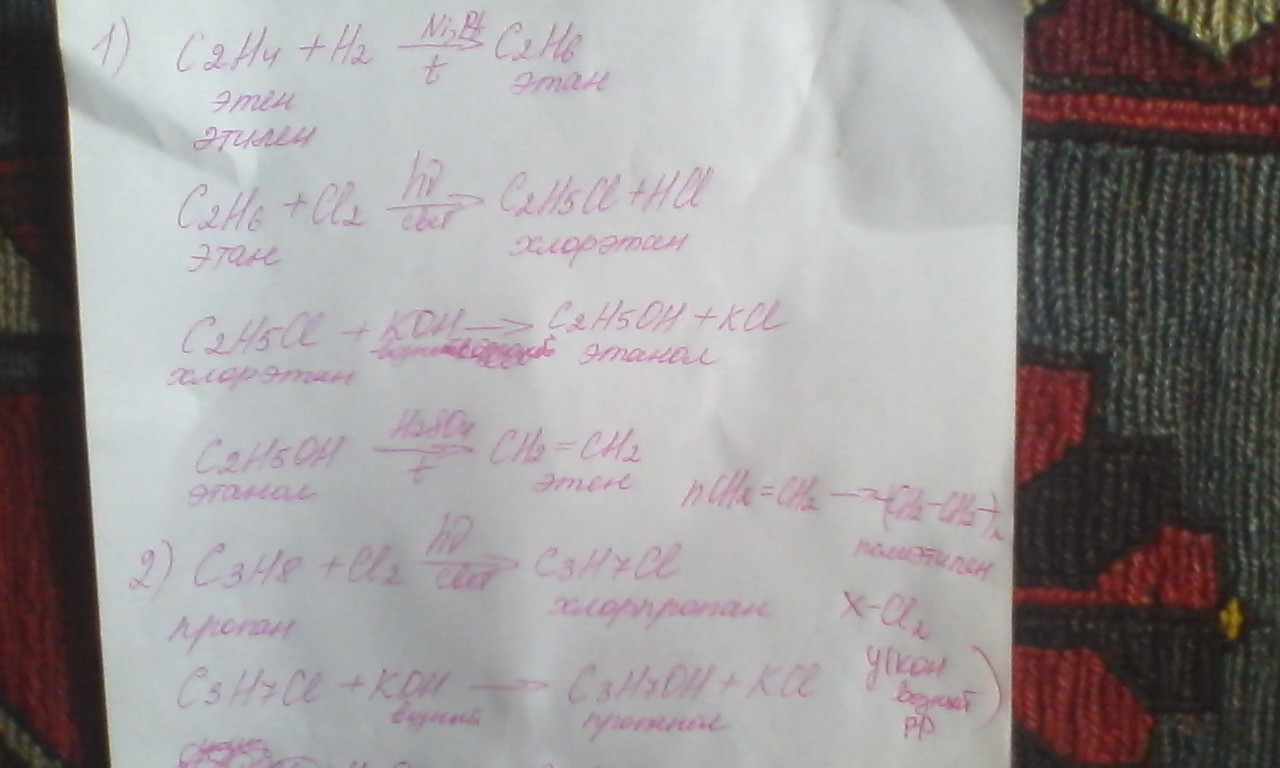 1) C2H4 + H2 Ni, Pt → t C2H6
этен этан
этилен
C2H6 + Cl2 hν → свет C2H5Cl + HCl
этан хлорэтан
C2H5Cl + KOH → C2H5OH + KCl
хлорэтан этанол
C2H5OH H2SO4 → t CH2=CH2
этанол этен
nCH2=CH2 → (CH2-CH2-)n
полиэтилен
2) C3H8 + Cl2 hν → свет C3H7Cl
пропан хлорпропан
X-Cl2
C3H7Cl + KOH → C3H7OH + KCl
водный пропанол
У(KOH
водный
рр)